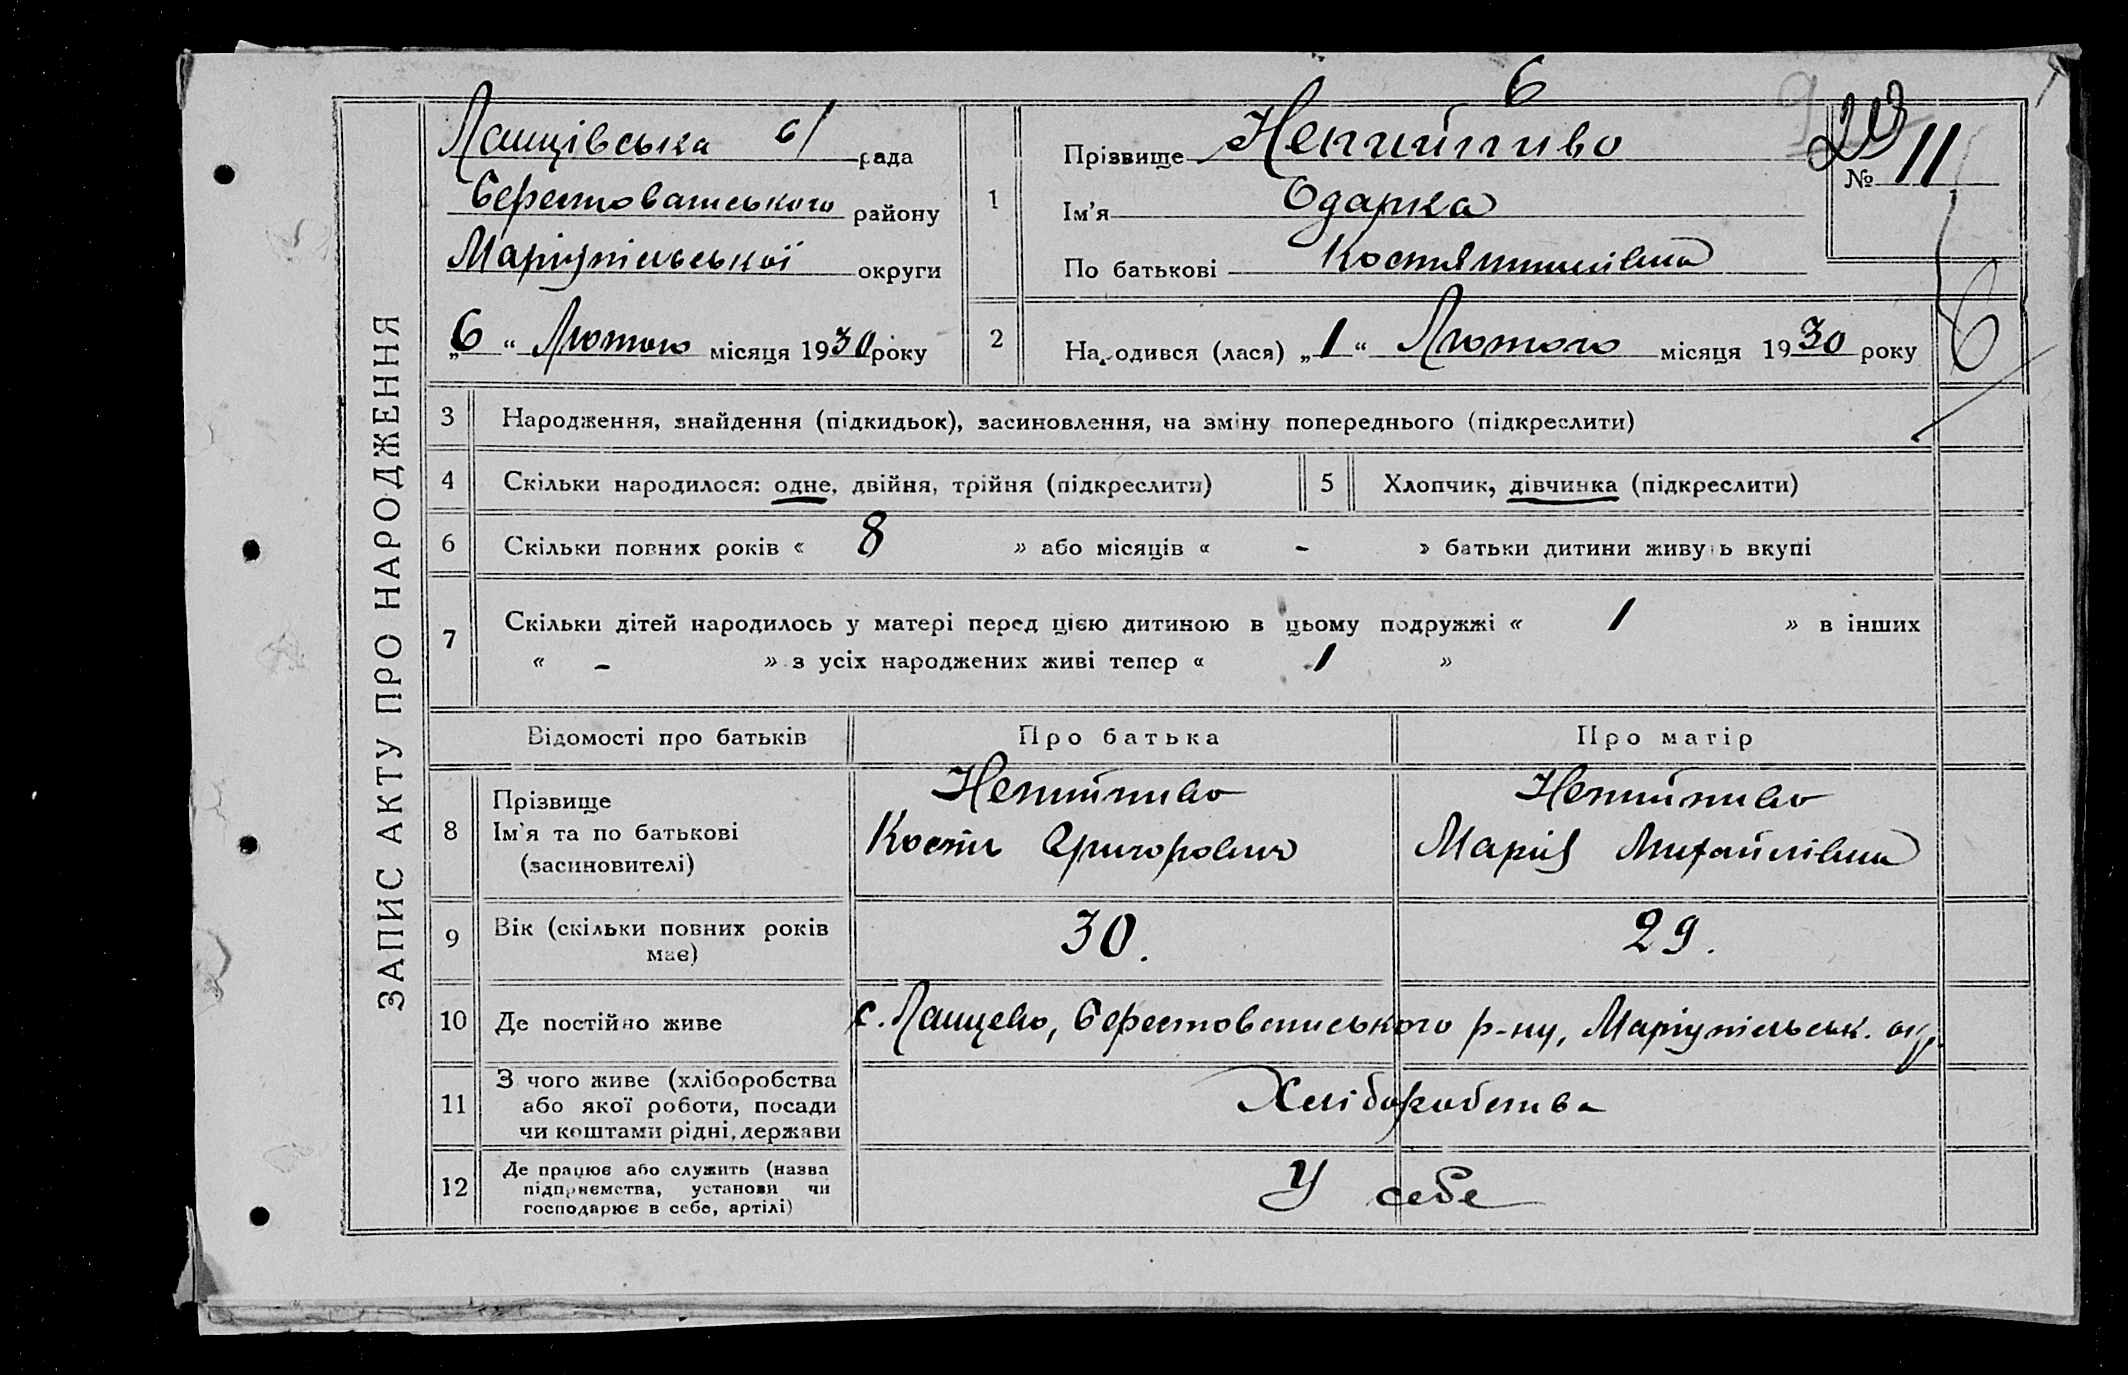 6
ЗАПИС АКТУ ПРО НАРОДЖЕННЯ
Ланцівська с/ рада
Берестоватського району
Маріупільської округи
„6“ Лютого місяця 1930 року
1
Прізвище Непийпиво
Ім'я Одарка
По батькові Костянтинівна
№ 11
2
Народився (лася) „1“ Лютого місяця 1930 року
6
3 Народження, знайдення (підкидьок), засиновлення, на зміну попереднього (підкреслити)
4 Скільки народилося: одне, двійня, трійня (підкреслити) 5 Хлопчик, дівчинка (підкреслити)
6 Скільки повних років « 8 » або місяців « - » батьки дитини живуть вкупі
7 Скільки дітей народилось у матері перед цією дитиною в цьому подружжі « 1 » в інших
« - » з усіх народжених живі тепер « 1 »
Відомості про батьків Про батька Про матір
8 Прізвище
Ім'я та по батькові
(засиновителі)
Непийпиво
Кость Григорович
Непийпиво
Марія Михайлівна
9 Вік (скільки повних років
має)
30. 29.
10 Де постійно живе с. Ланцево, Берестоватського р-ну, Маріупільськ. окр.
11 З чого живе (хліборобства
або якої роботи, посади
чи коштами рідні, держави
Хліборобства
12 Де працює або служить (назва
підприємства, установи чи
господарює в себе, артілі)
У себе